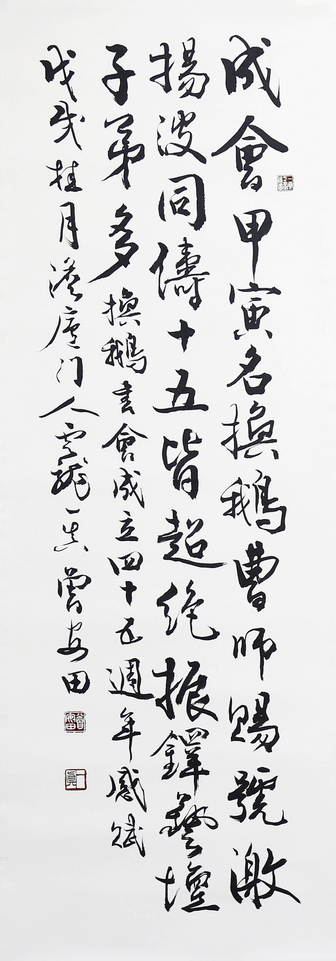 成會甲寅名換鵝曹師賜號激
揚波同儔十五皆超絶振鐸藝壇
子弟多換鵝書會成立四十五週年感賦
戊戌桂月澹廬门人一真曾安田